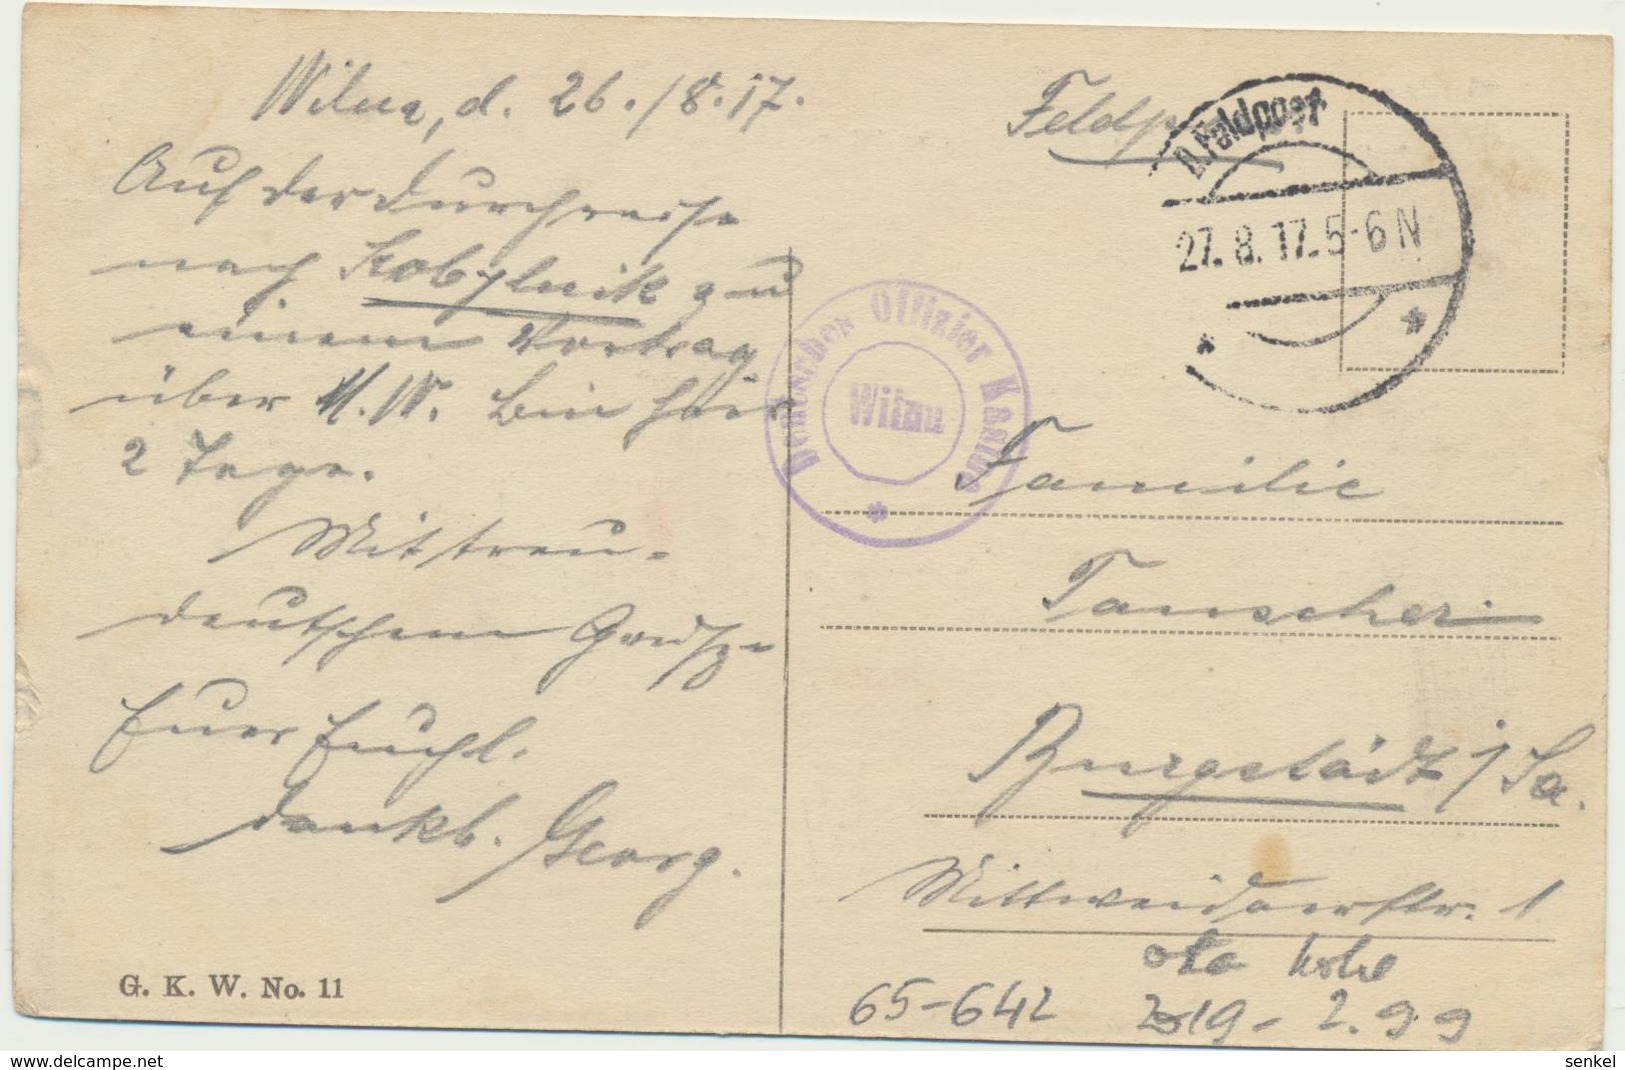 Wilna, d. 26./8.17.
Auf der Durchreise
nach Kobylnik zu
einem Vortrag
über M.W. Bin hier
2 Tage.
Mit treu-
deutschem Gruß
Euer Euch l.
dankb. Georg.
G. K. W. No. 11
Feldp
D. Feldpost
27.8.17.5-6N
Offizier Kasino
Wilna
Familie
Tauscher
Burgstädt i/Sa.
Mittweidaerstr. 1
65-642
2.99
delcampe.net
senkel